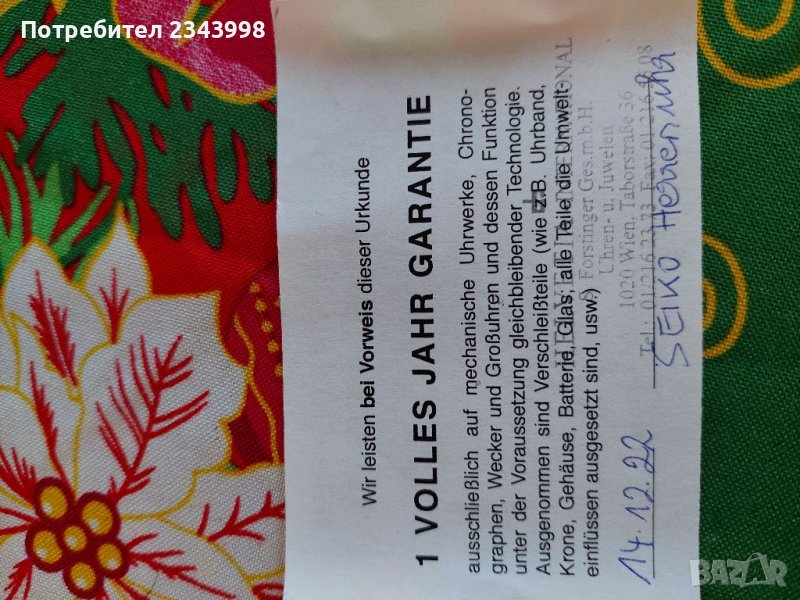 Потребител 2343998
Wir leisten bei Vorweis dieser Urkunde
1 VOLLES JAHR GARANTIE
ausschließlich auf mechanische Uhrwerke, Chrono-
graphen, Wecker und Großuhren und dessen Funktion
unter der Voraussetzung gleichbleibender Technologie.
Ausgenommen sind Verschleißteile (wie z.B. Uhrband,
Krone, Gehäuse, Batterie, Glas, alle Teile die Umwelt-
einflüssen ausgesetzt sind, usw.)
Forstinger Ges.m.b.H.
Uhren- u. Juwelen
1020 Wien, Taborstraße 36
Tel.: 01/216 23 73 Fax: 01/216
14.12.22 SEIKO Herrenuhr
BAZAR